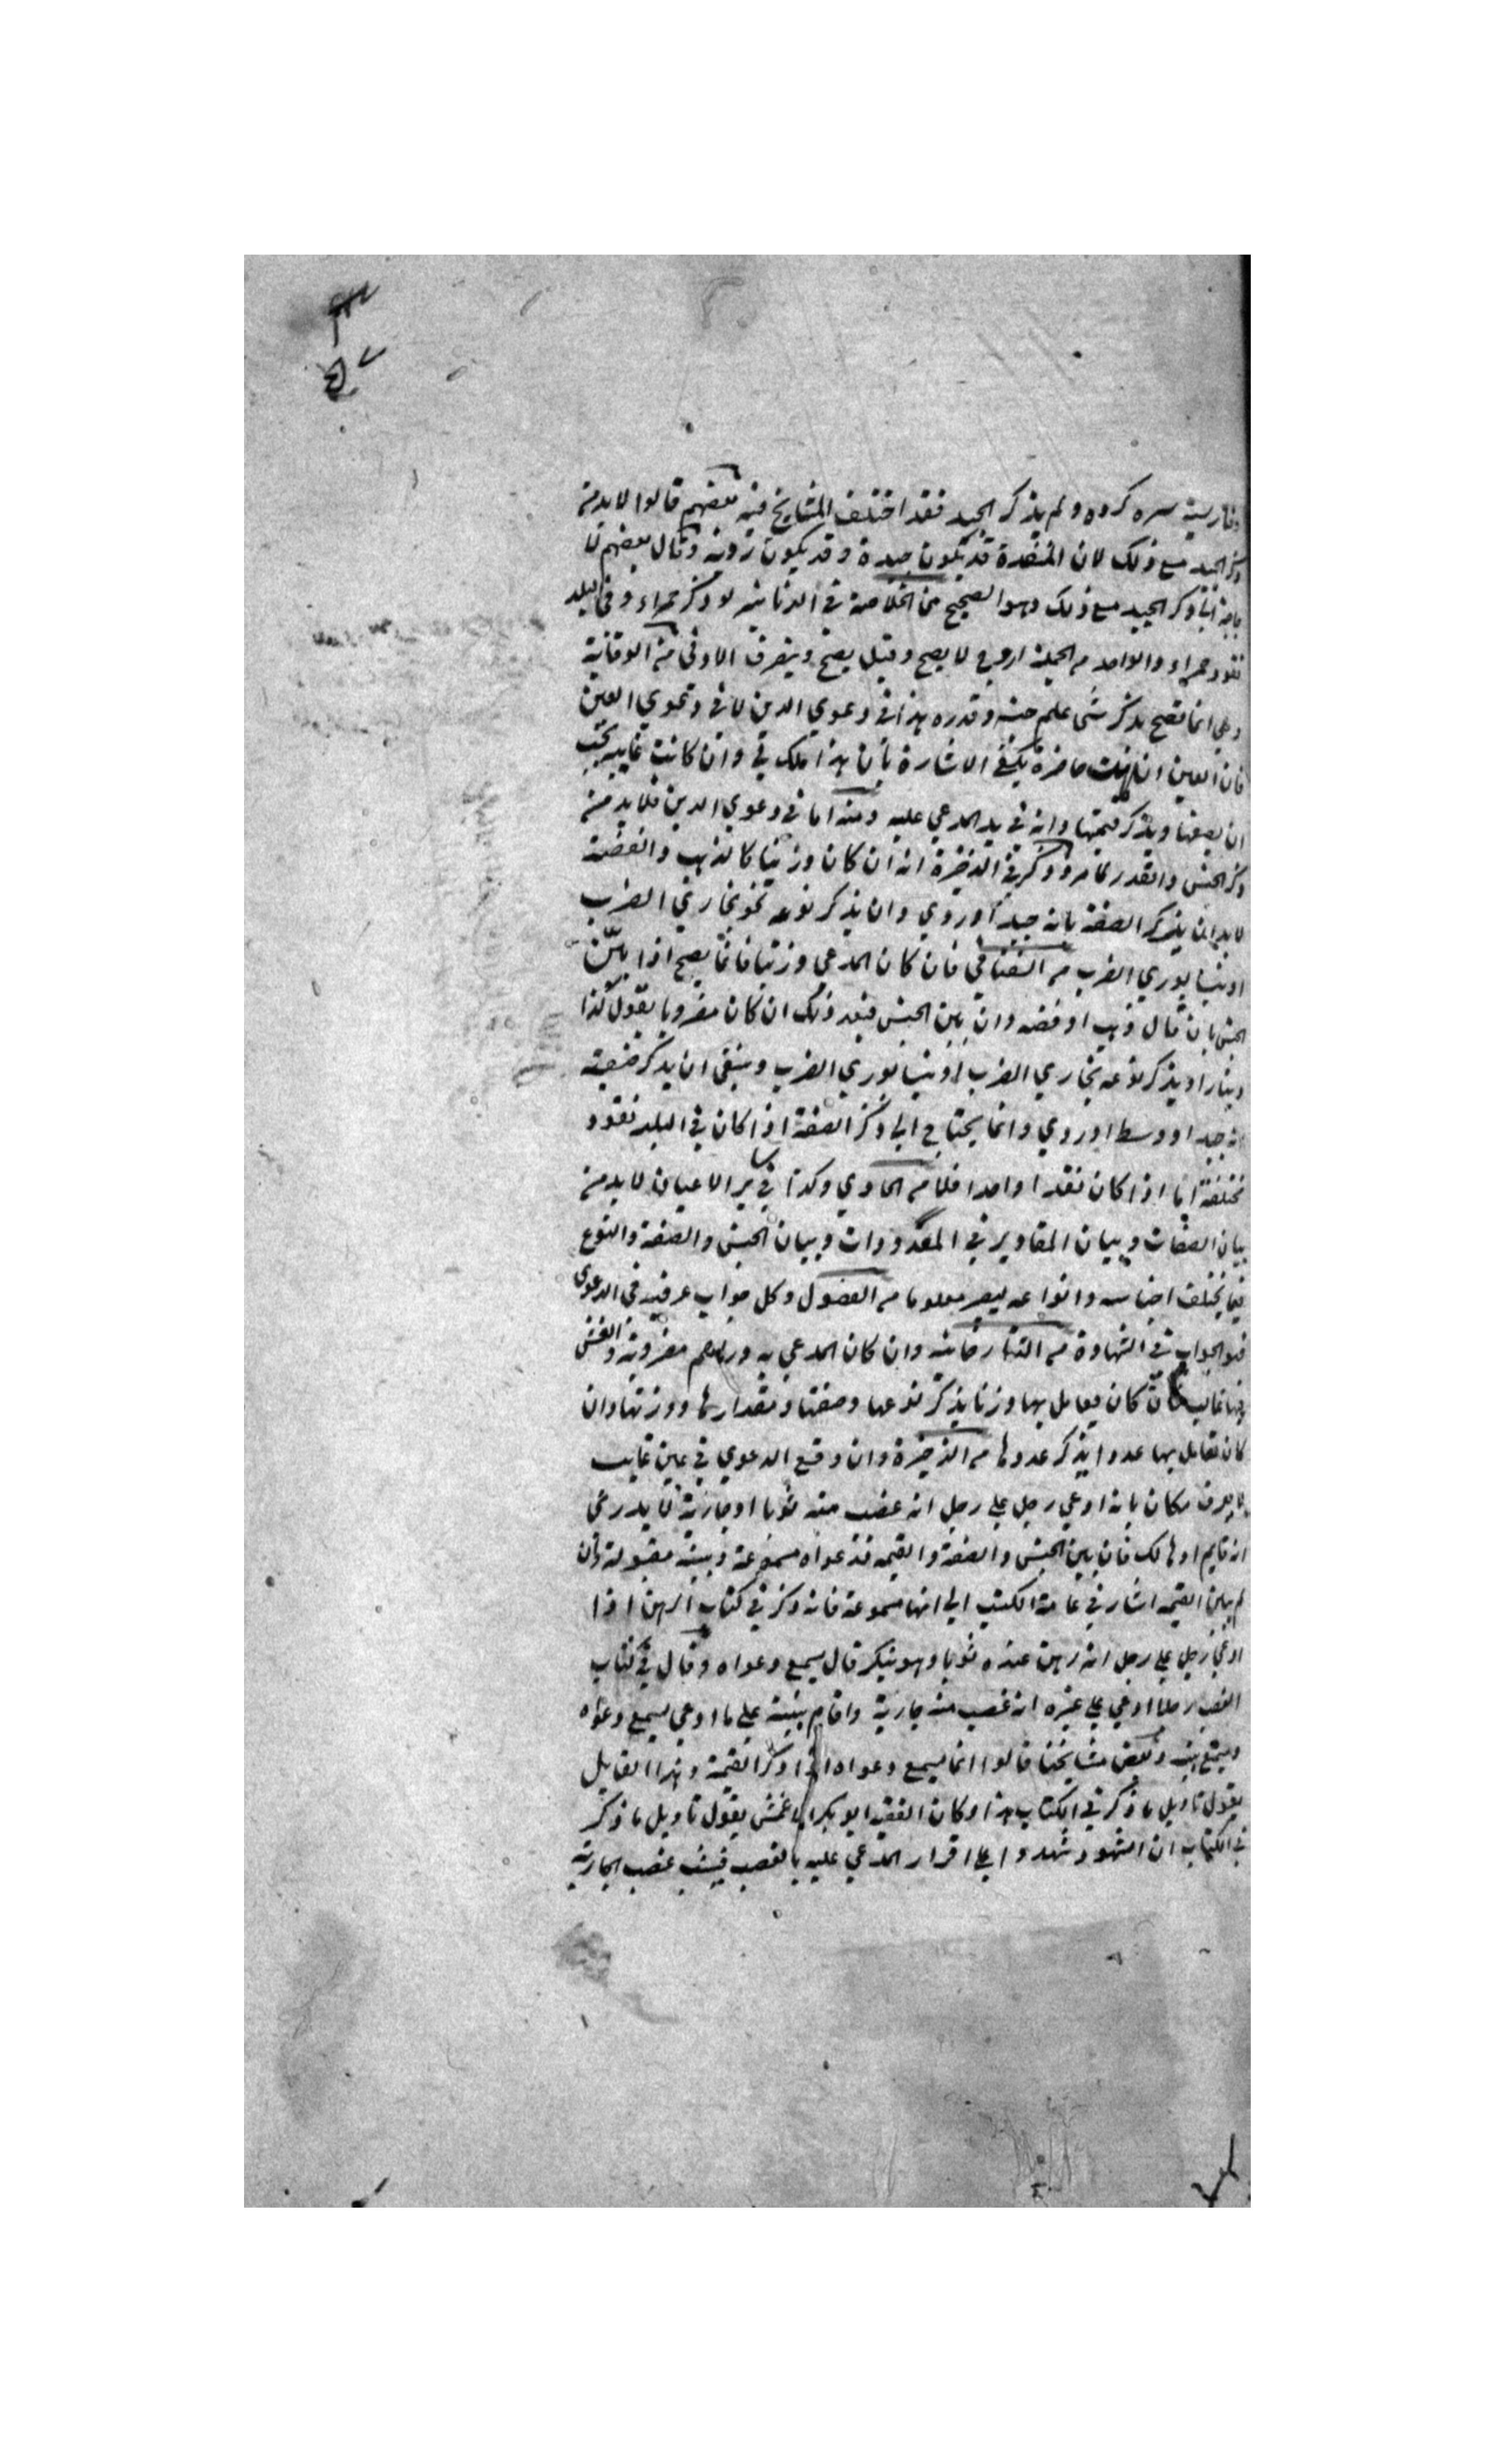 وفارسيته سره كرده ولم يذكر الجيد فقد اختلف المشايخ فيه بعضهم قالوا لابد من
ذكر الجيد مع ذلك لان المنقدة قد تكون جيدة وقد يكون ردية وقال بعضهم لا
حاجة الى ذكر الجيد مع ذلك وهو الصحيح من الخلاصة في الدنانير لو ذكر حمراء وفي البلد
نقود حمراء والواحد من الجملة اروج لا يصح وقيل يصح وينصرف الادنى من الوقاية
وهي انما تصح بذكر شي علم جنسه وقدره هذا في دعوي الدين لا في دعوي العين
فان العين ان كانت حاضرة يكفي الاشارة بان هذا ملك لي وان كانت غايبة يجب
ان يصفها ويذكر قيمتها وانه في يد المدعي عليه ومنه اما في دعوي الدين فلابد من
ذكر الجنس والقدر كما مر وذكر في الذخيرة انه ان كان وزنيا كالذهب والفضة
لابد ان يذكر الصفة بانه جيد او ردي وان يذكر نوعه نحو بخاري الضرب
او نيسابوري الضرب من الشفا في فان كان المدعي وزنيا فانما يصح اذا بين
الجنس بان قال ذهب او فضه وان بين الجنس فبعد ذلك ان كان مضروبا يقول كذا
دينارا ويذكر نوعه بخاري الضرب او نيسابوري الضرب وينبغي ان يذكر صفته
انه جيد او وسط او ردي وانما يحتاج الي ذكر الصفة اذا كان في البلد نقود
مختلفة اما اذا كان نقدا واحدا فلا من الحاوي وكذا في ساير الاعيان لابد من
بيان الصفات وبيان المقادير في المعدودات وبيان الجنس والصفة والنوع
فيما يختلف اجناسه وانواعه ليصير معلوما من الفصول وكل جواب عرفته في الدعوى
فهو الجواب في الشهادة من التتارخانيه وان كان المدعي به دراهم مضروبة والغش
فيها غالب فان كان يعامل بها وزنا يذكر نوعها وصفتها ومقدارها ووزنها وان
كان تعامل بها عددا يذكر عددها من الذخيرة وان وقع الدعوي في عين غايب
لا يعرف مكان بانه ادعي رجل علي رجل انه غصب منه ثوبا او جارية لا يدري
انه قايم او هالك فان بين الجنس والصفة والقيمه فدعواه مسموعة وبينته مقبولة وان
لم يبين القيمه اشار في عامة الكتب الي انها مسموعة فانه ذكر في كتاب الرهن اذا
ادعي رجل علي رجل انه رهن عنده ثوبا وهو ينكر قال يسمع دعواه وقال في كتاب
الغصب رجل ادعي علي غيره انه غصب منه جارية واقام بينة علي ما ادعي يسمع دعواه
ويسمع بينته وبعض مشايخنا قالوا انما يسمع دعواه اذا ذكر القيمة وهذا القايل
يقول تاويل ما ذكر في الكتاب هذا وكان الفقيه ابو بكر الاعمش يقول تاويل ما ذكر
في الكتاب ان الشهود شهدوا علي اقرار المدعي عليه بالغصب فيثبت غصب الجارية